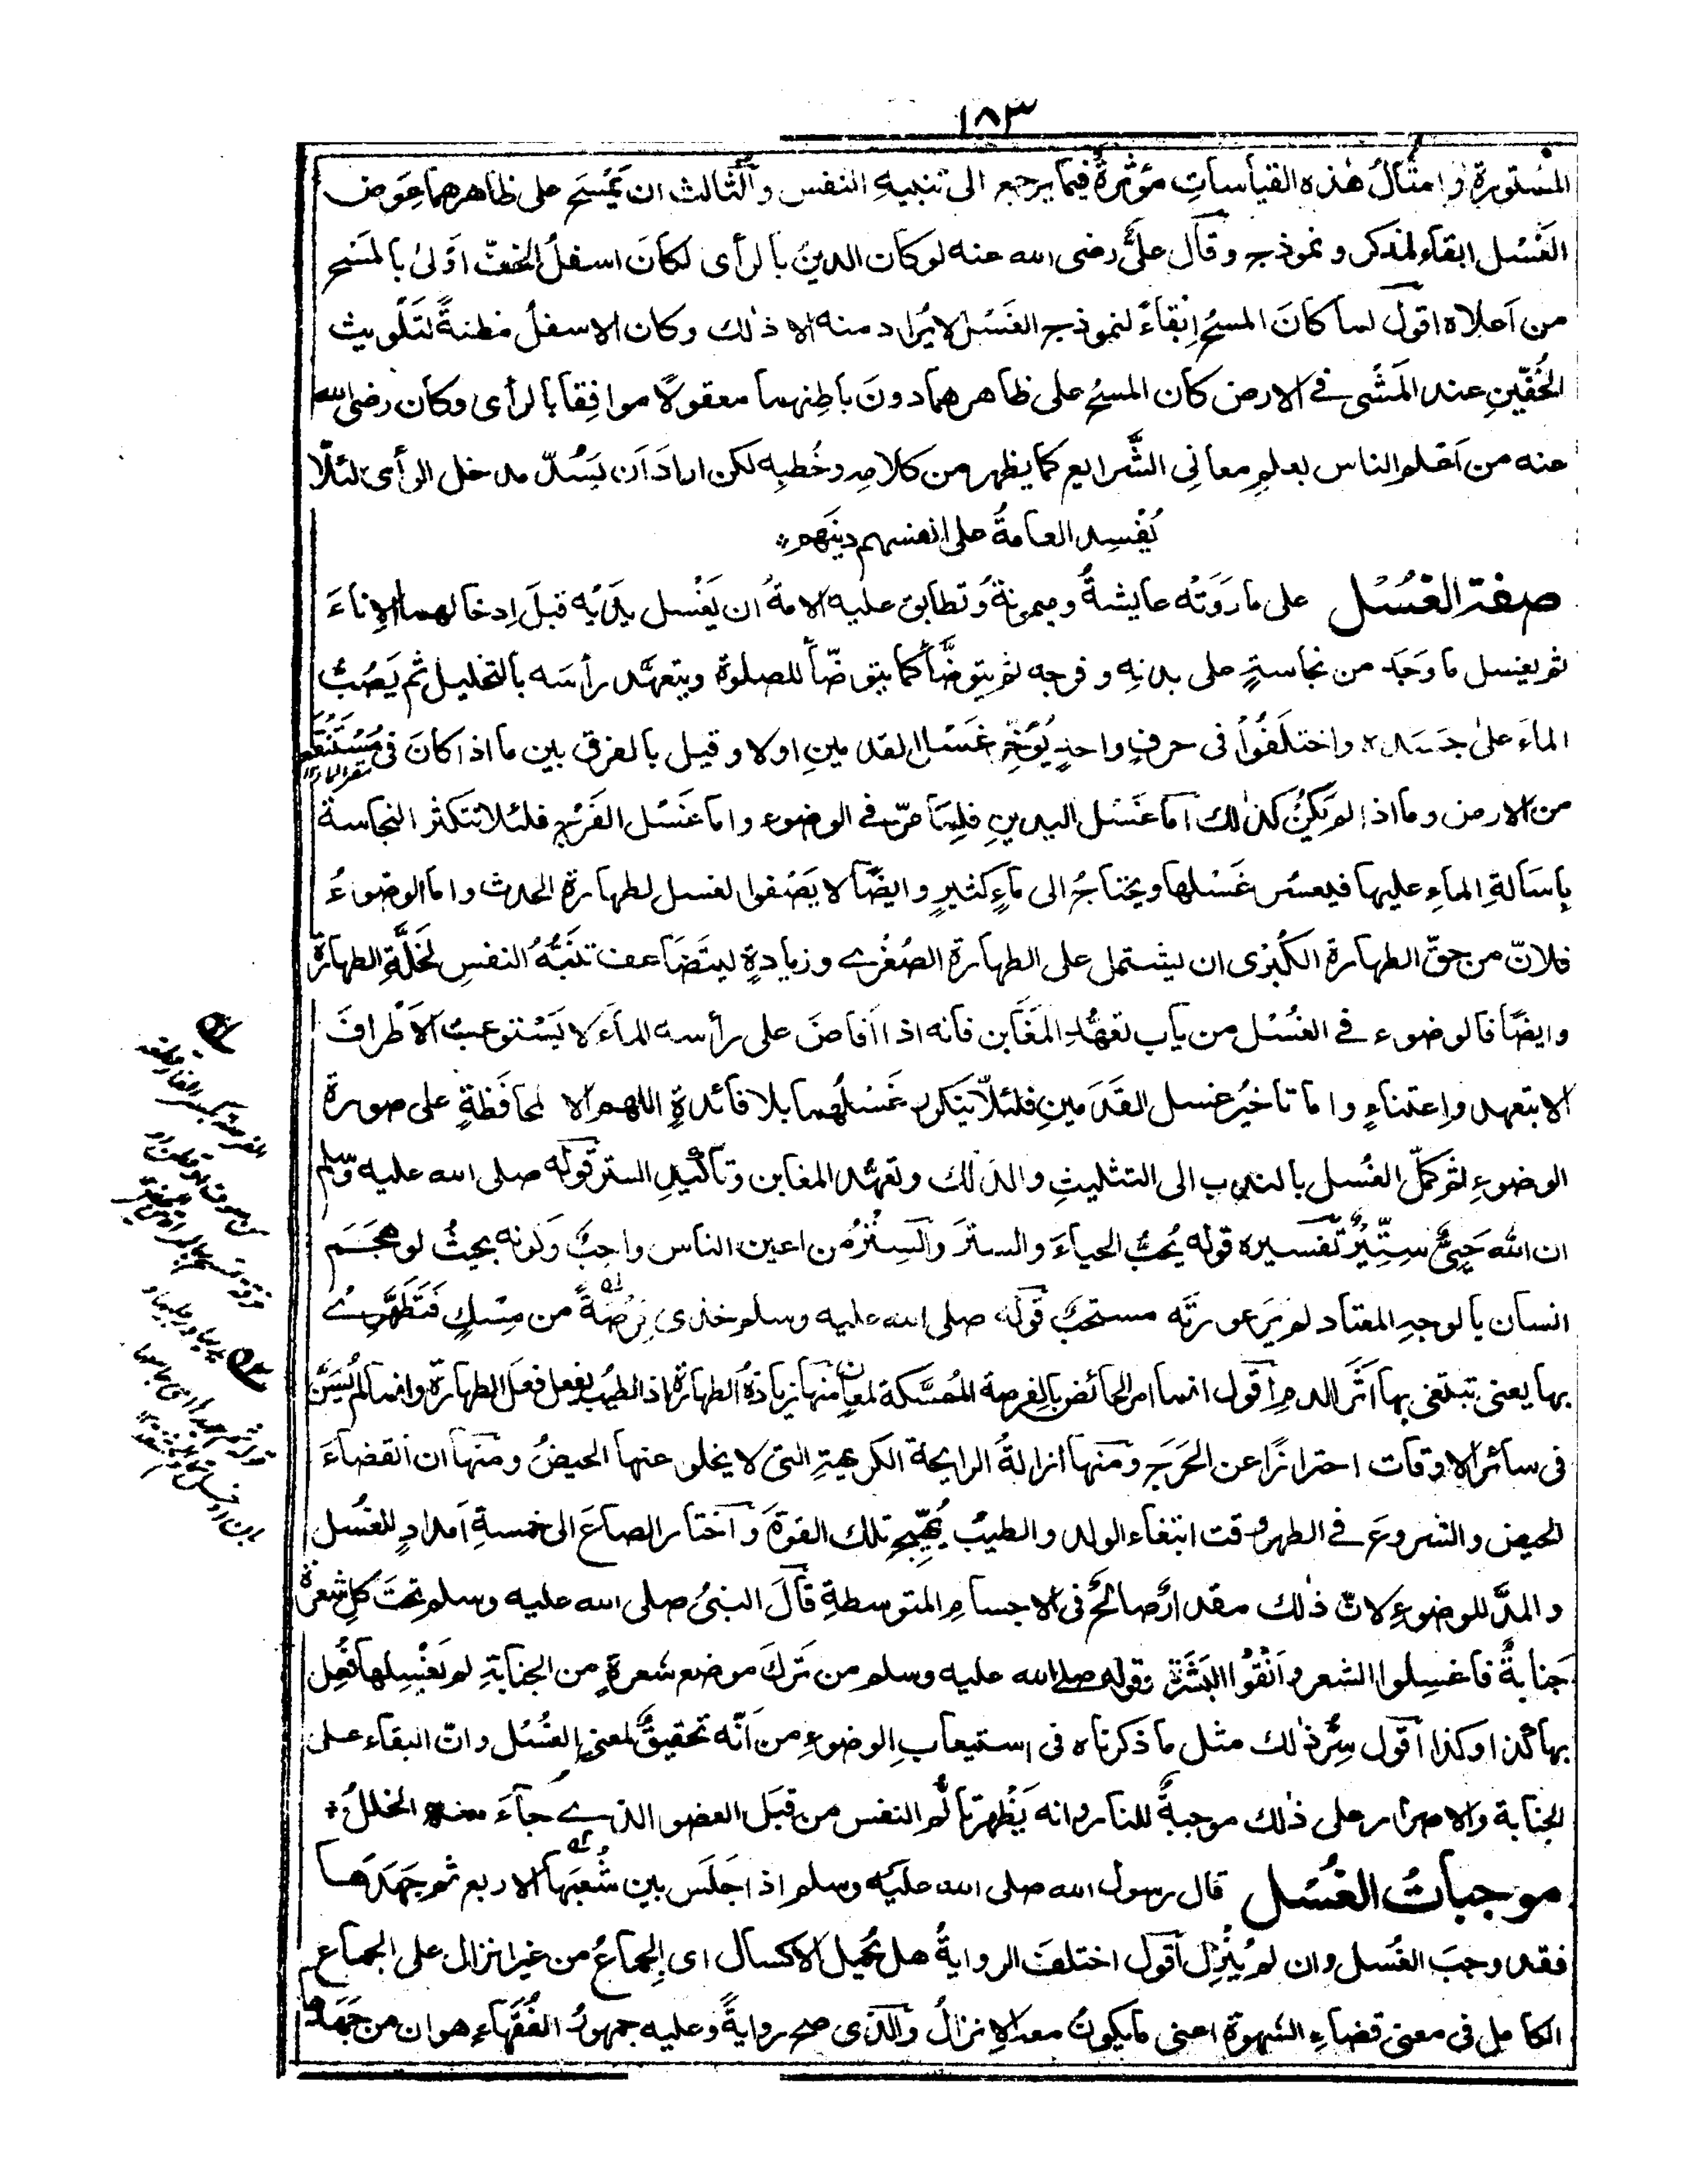 ١٨٣
المستورة و امثالُ هٰذه القياساتِ مؤثرةٌ فيما يرجع الى تنبيهِ النفس والثالث ان يَمْسَح على ظاهرهما عِوَض
الغَسْل ابقاءً لمذكر و نموذجٍ و قال علیٌّ رضى الله عنه لوكان الدينُ بالرأى لكانَ اسفلُ الخفّ اَوْلىٰ بالمَسْح
من اَعلاه اقول لما كانَ المسحُ اِبقاءً لنموذج الغَسْل لا يُراد منه الا ذٰلك وكان الاسفلُ مظنةً لتَلْويث
الخُفّينِ عند المَشْى فى الارض كان المسحُ على ظاهرهما دونَ باطِنهما معقولًا موافِقا بالرأى وكان رضى الله
عنه من اَعْلمِ الناس بعلمِ معانِى الشَّرايع كما يظهر من كلامِه وخُطبِه لكن ارادَ اَن يَسُدّ مدخل الرأى لئلّا
يُفْسِد العامةُ على انفسهم دينَهم
صفة الغُسْل على ما رَوَتْه عايشةُ وميمونةُ وتطابق عليه الامةُ ان يَغْسل يَدَيْه قبلَ اِدخالهما الاِناءَ
ثم يغسل ما وَجَد من نجاسةٍ على بدنِه و فرجه ثم يتوضَّأُ كما يتوضّأ للصلوة ويتعهَّد رأسَه بالتخليل ثم يَصُبُّ
الماءَ علىٰ جسَدِه واختلَفُوْا فى حرفٍ واحدٍ يُؤخِّر غَسْل القدمينِ اولا وقيل بالفرق بين ما اذا كانَ فى مُسْتَنْقَع
من الارض وما اذا لم يكنُ كذٰلك اَما غَسْل اليدينِ فلِمَا مرّ فى الوضوء واما غَسْل الفَرْج فلئلا تتكثر النجاسة
بِاسَالةِ الماءِ عليها فيعسُر غَسْلها ويحتاجُ الى ماءٍ كثيرٍ وايضًا لا يَصْفوا لغسل لطهارة الحدث واما الوضوءُ
فلانّ من حقّ الطهارة الكُبْرى ان يشتمل على الطهارة الصُغْرے وزيادةٍ ليتَضَاعف تنَبُّهُ النفسِ لخَلَّةِ الطهارة
وايضًا فالوضوء فى الغُسْل من باب تعهُّدِ المَغَابن فانه اذا اَفاضَ على رأسه الماءَ لا يَسْتوعبُ الاَطرافَ
الا بتعهد واِعتناءٍ واما تاخيُر غسل القَدَمينِ فلئلّا يتكرر غَسْلُهما بلا فائدةٍ اللهم الا لمحافَظةٍ على صورة
الوضوءِ ثم كمّل الغُسل بالندب الى التثليثِ والدَلك وتعهُّد المغابن وتأكيدِ الستر قوله صلى الله عليه وسلم
ان الله حَيِىٌّ سِتِّيْرٌ تفسيره قوله يُحبُّ الحياءَ والسترَ والستْرُ من اعين الناس واجبٌ وكونه بحيثُ لو هجَمَ
انسان بالوجهِ المعتاد لم يَرَ عورتَه مستحبٌ قوله صلى الله عليه وسلم خذى فِرْصَةً من مِسْكٍ فَتَطَهَّرِے
بها يعنى تبتغى بها اَثَر الدم اقول انما امر الحائض بالفِرصة المُمسَّكة لمعانٍ منها زيادةُ الطهارة اذ الطيبُ يفعل فعلَ الطهارة وانما لم يُسَنَّ
فى سائر الاوقات احترازًا عن الحَرَج ومنها ازالةُ الرايحة الكرهيةِ التى لا يخلو عنها الحيضُ ومنها ان انقضاءَ
الحيض والشروعَ فى الطهر وقت ابتغاء الولد والطيبُ يُهَيِّج تلك القوةَ واختار الصاعَ الى خمسةِ اَمدادٍ للغُسل
والمدَّ للوضوءِ لانّ ذٰلك مقدارٌ صالحٌ فى الاجسامِ المتوسطةِ قال النبىُّ صلى الله عليه وسلم تحتَ كلِ شعرة
جنابةٌ فاغسِلوا الشعر واَنْقُوا البَشَرَة قوله صلى الله عليه وسلم من تَرَكَ موضع شعرةٍ من الجنابةِ لم يَغْسِلها فُعِل
بها كذا وكذا اقول سرُّ ذٰلك مثل ما ذكرناه فى استيعابِ الوضوءِ من اَنّه تحقيقٌ لمعنى الغُسْل وانّ البقاء على
الجنابة والاصرار على ذٰلك موجبةٌ للنار وانه يَظْهر تألُّم النفس من قبَل العضو الذے جاءَ منه الخللُ
موجباتُ الغُسْل قال رسول الله صلى الله عليه وسلم اذا جَلَس بين شُعَبها الاربع ثم جَهَدَها
فقد وجبَ الغُسل وان لم يُنْزِل اقول اختلفَ الروايةُ هل يُحمل الاكسال اى الجِماعُ من غير انزال على الجماع
الكامل فى معنى قضاءِ الشهوة اعنى ما يكونُ معه الانزالُ والذى صح روايةً وعليه جمهورُ الفُقَهاءِ هو ان من جَهَدَها